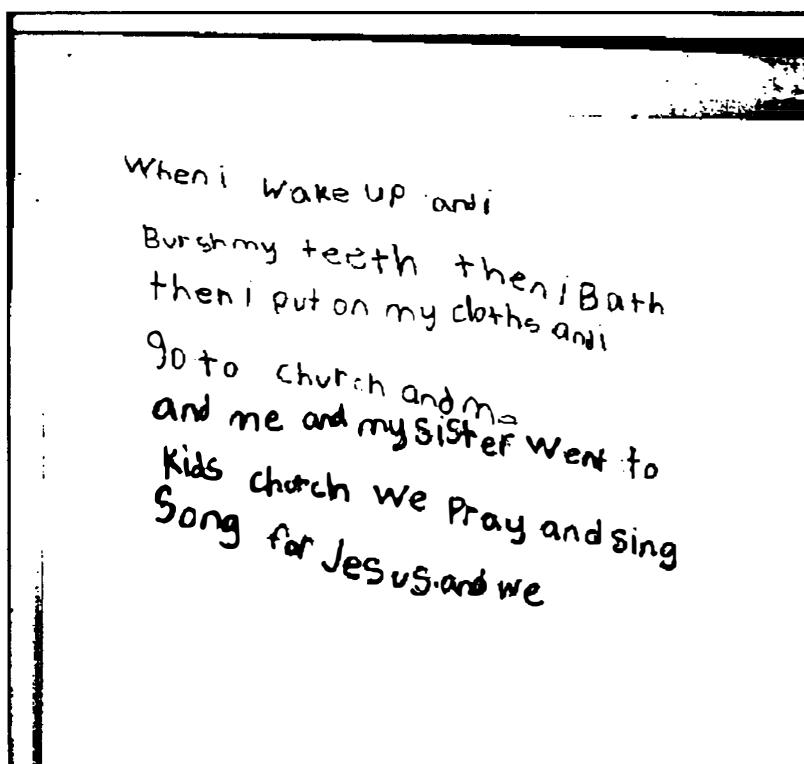 When i wake up and i
Bursh my teeth then i Bath
then i put on my cloths and i
go to church and me
and me and my sister went to
kids church we Pray and sing
Song for Jesus. and we